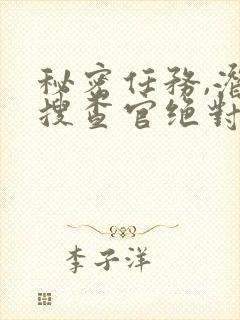 秘密任務,潛
搜查官绝對
李子洋